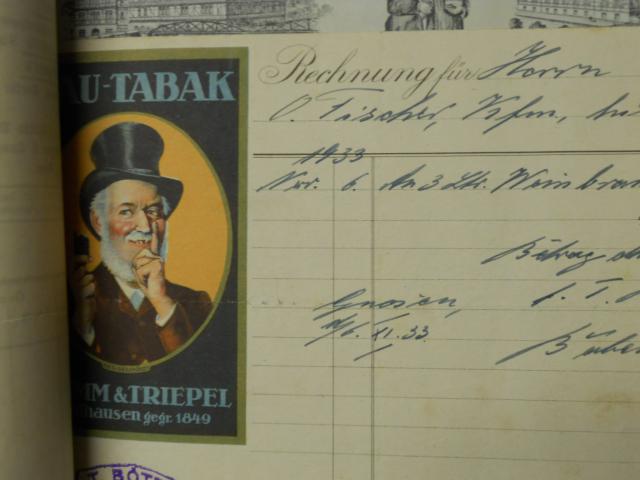 AU-TABAK
MM & TRIEPEL
hausen gegr. 1849
Rechnung für Herrn
O. Fischer, Kfm.,
1933
Nov. 6. An 3 Ltr. Weinbran
Betrag
Gnoien,
d. 6. XI. 33.
BÖT